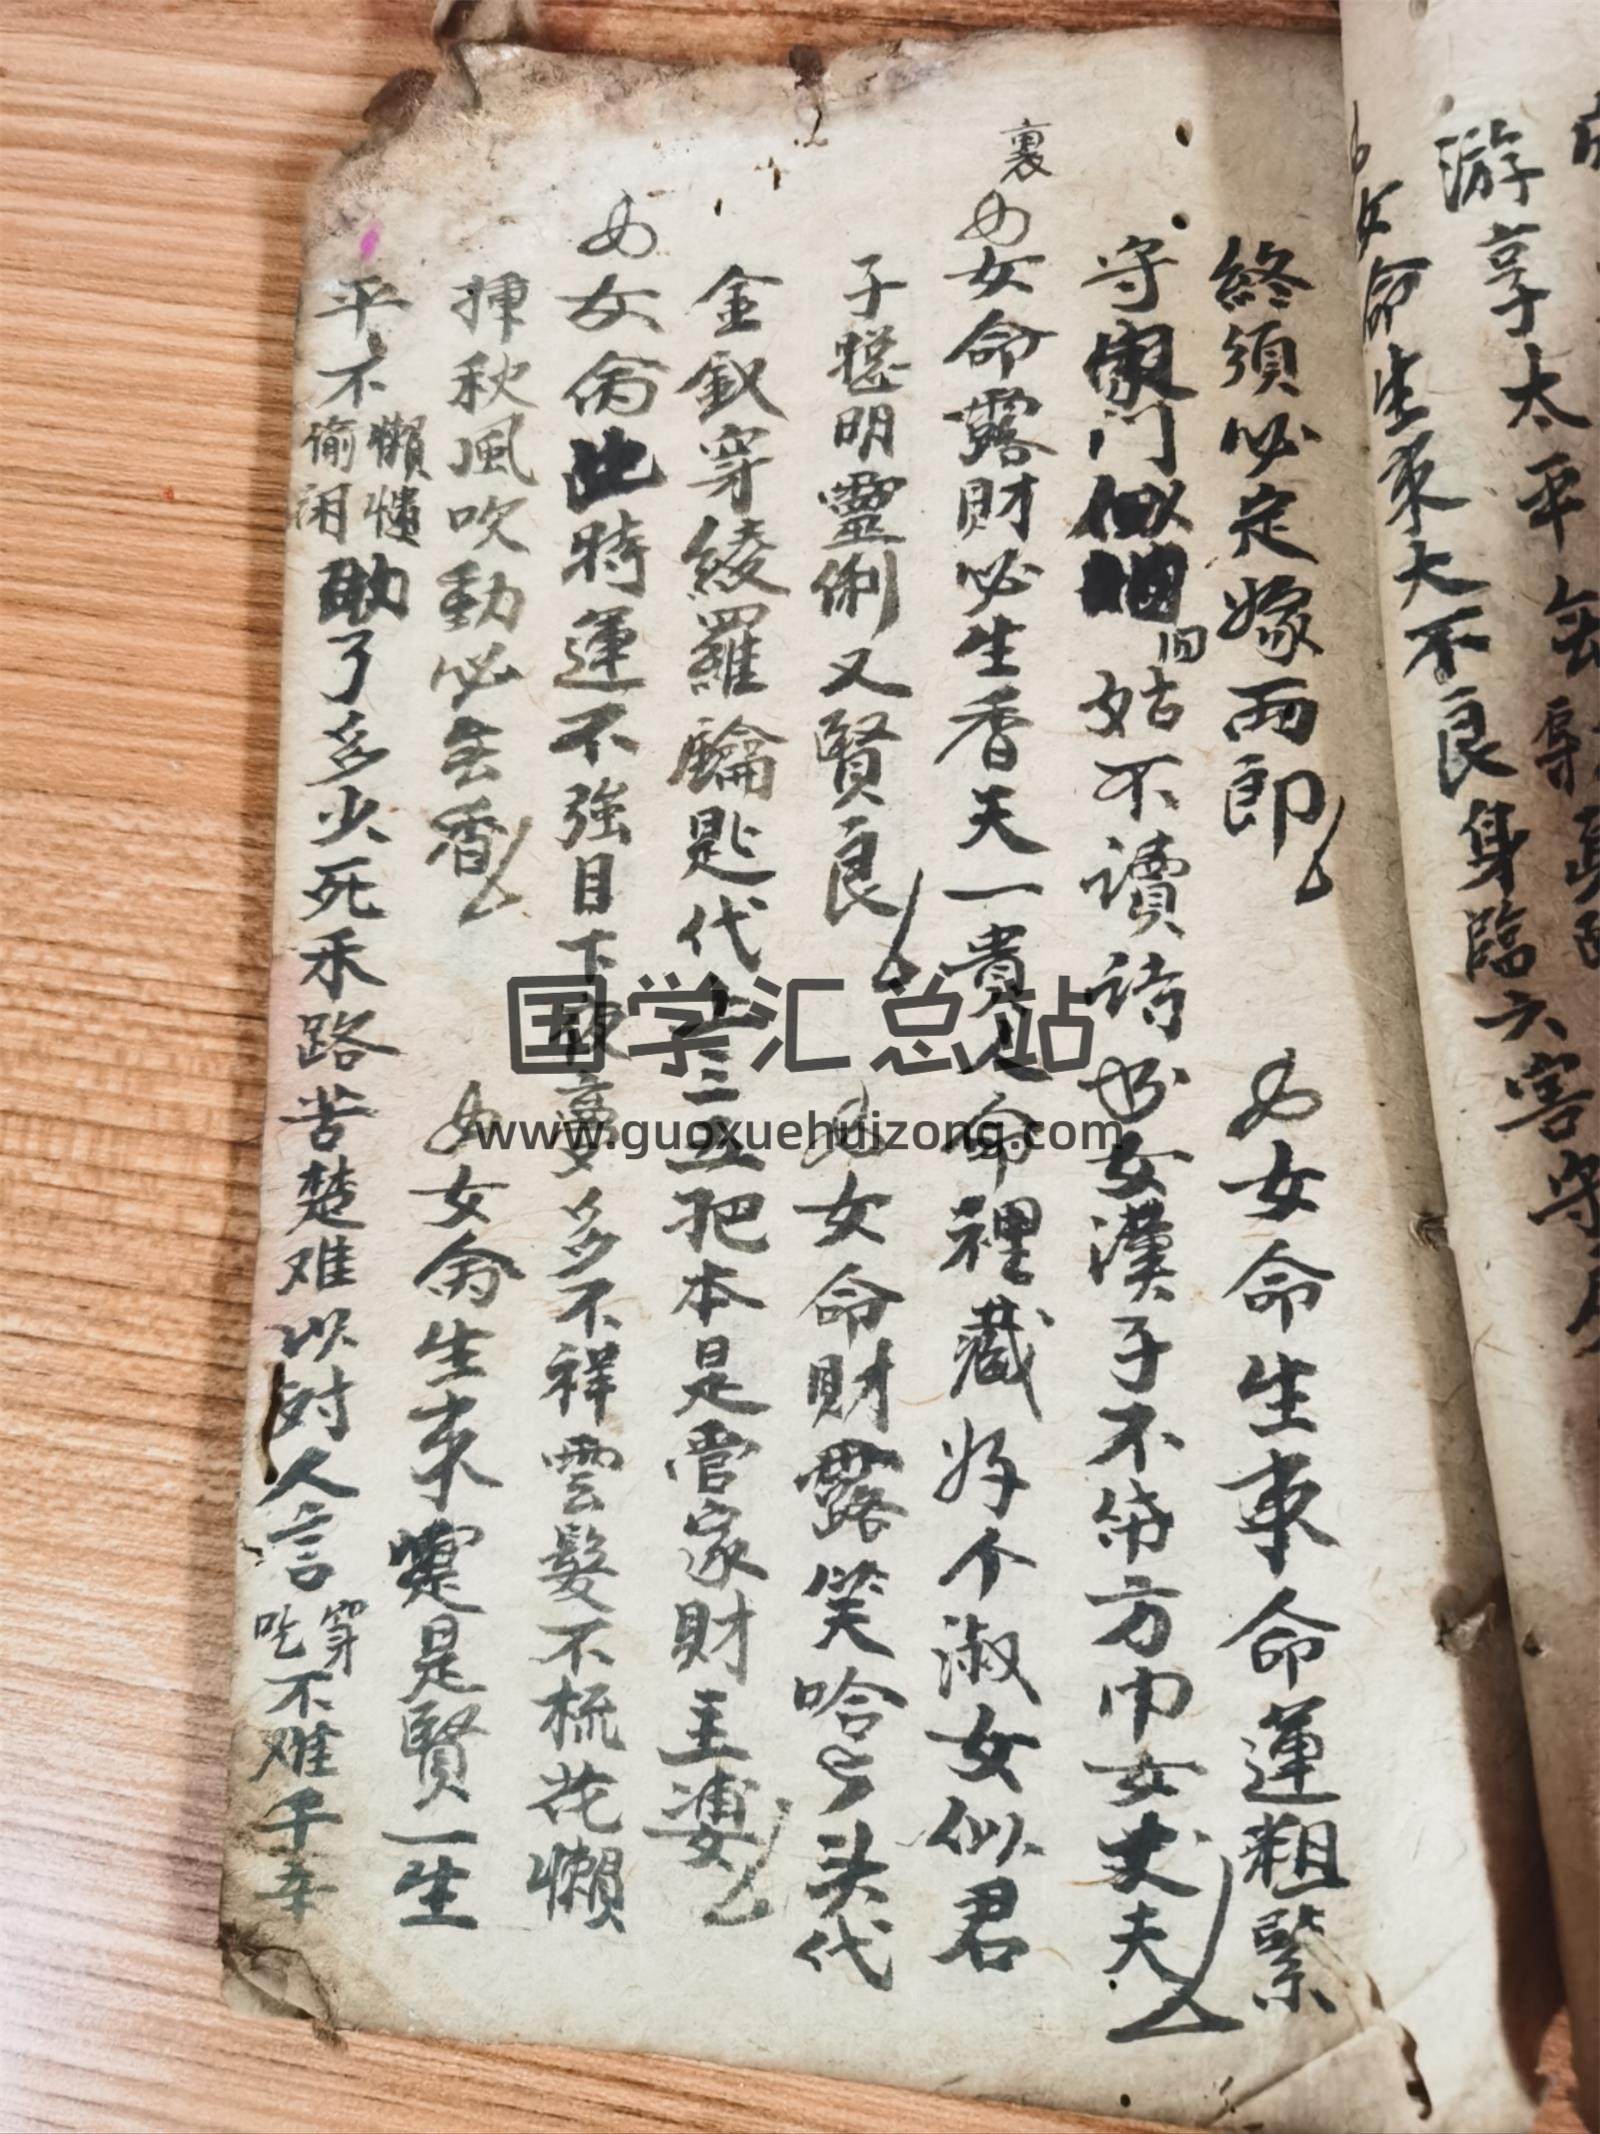 游享太平
女命生来大不良身臨六害守
終須必定嫁両郎 女命生来命運粗緊
守家門似姑不讀詩女漢子不代方巾女丈夫
裏
女命露財必生香天一貴人命裡藏好个淑女似君
子聪明靈俐又賢良 女命財露笑哈头代
金釵穿綾羅鑰匙代上三五把本是管家財主婆
女命此時運不強目下夜夢多不祥雲髮不梳花懶
挿秋風吹動必去香 女命生来寔是賢一生
平不懶惰偷闲助了多少死禾路苦楚难以对人言穿吃不难千辛
国学汇总站
www.guoxuehuizong.com